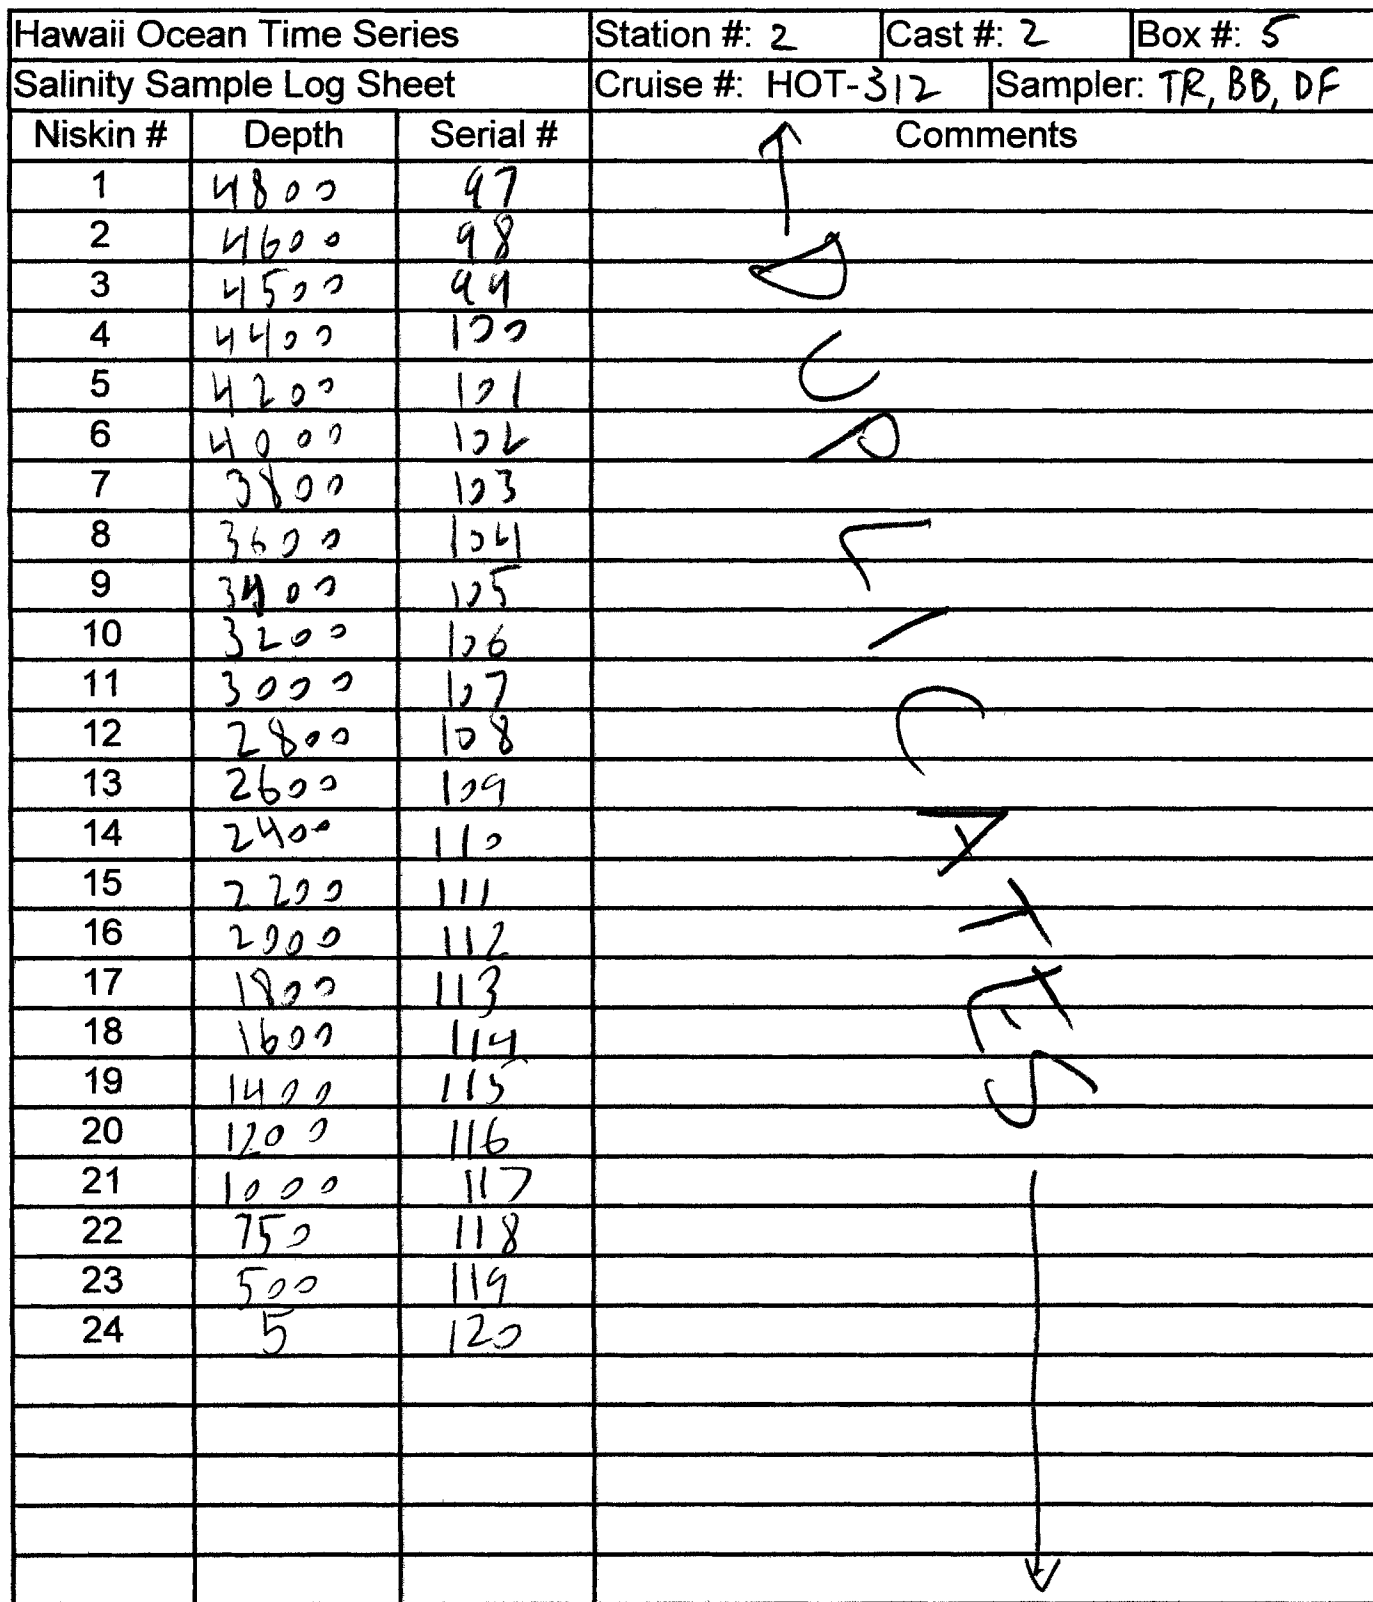 Hawaii Ocean Time Series Station #: 2 Cast #: 2 Box #: 5
Salinity Sample Log Sheet Cruise #: HOT-312 Sampler: TR, BB, DF
Niskin # Depth Serial # Comments
1 4800 97
2 4600 98
3 4500 99
4 4400 100
5 4200 101
6 4000 102
7 3800 103
8 3600 104
9 3400 105
10 3200 106
11 3000 107
12 2800 108
13 2600 109
14 2400 110
15 2200 111
16 2000 112
17 1800 113
18 1600 114
19 1400 115
20 1200 116
21 1000 117
22 750 118
23 500 119
24 5 120
DUPLICATES